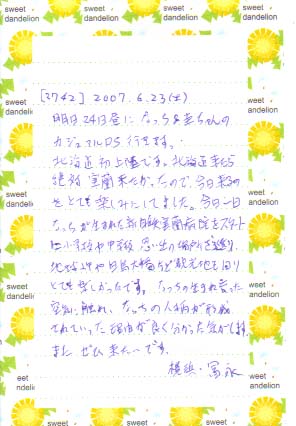 sweet dandelion sweet dandelion sweet dandelion
[2742] 2007.6.23(土)
明日24日昼になっち&圭ちゃんの
カジュアルDS行きます。
北海道初上陸です。北海道来たら
絶対室蘭来たかったので、今日来るの
をとても楽しみにしてました。今日一日
なっちが生まれた新日鐵室蘭病院をスタート
に小学校や中学校、思い出の場所を巡り、
地球岬や白鳥大橋など観光地を回り
とても楽しかったです。なっちの生まれ育った
室蘭に触れ、なっちの人柄が形成
されていった理由が良く分かった気がします。
また ぜひ来たいです。
横浜・冨永
sweet dandelion
sweet dandelion
sweet dandelion
sweet dandelion
sweet dandelion
sweet dandelion
sweet